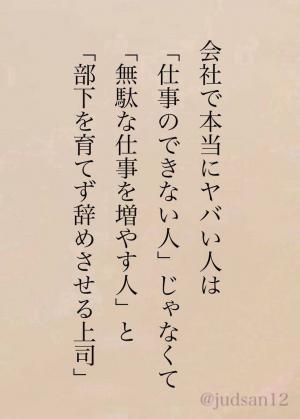 会社で本当にヤバい人は
「仕事のできない人」じゃなくて
「無駄な仕事を増やす人」と
「部下を育てず辞めさせる上司」
@judsan12